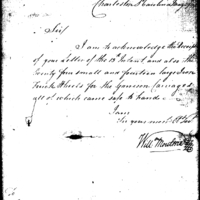 Charleston S Carolina Aug
Sir,
I am to acknowledge the Receipt
of your letter of the 13th Instant and also the
Twenty four small and fourteen large Iron
Truck Wheels for the Garrison Carriages
all of which came safe to hand.
I am
Sir your most Ob Ser
Will